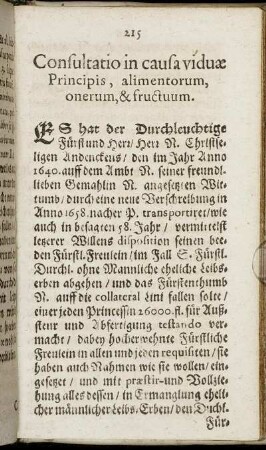 215
Consultatio in causa viduæ
Principis, alimentorum,
onerum, & fructuum.
ES hat der Durchleuchtige
Fürst und Herr / Herr N. Christse-
ligen Andenckens / den im Jahr Anno
1640. auff dem Ambt N. seiner freund-
lieben Gemahlin N. angesetzten Wit-
tumb / durch eine neue Verschreibung in
Anno 1658. nacher P. transportiret / wie
auch in besagten 58. Jahr / vermittelst
letzerer Willens disposition seinen bee-
den Fürstl. Freulein / im Fall S. Fürstl.
Durchl. ohne Mannliche eheliche Leibs-
erben abgehen / und das Fürstenthumb
N. auff die collateral Lini fallen solte /
einer jeden Princessin 26000. fl. für Auß-
steur und Abfertigung testando ver-
macht / dabey hocherwehnte Fürstliche
Freulein in allen und jeden requisiten / sie
haben auch Nahmen wie sie wollen / ein-
gesetzet / und mit præstir- und Vollzie-
hung alles dessen / in Ermanglung eheli-
cher männlicher Leibs-Erben / den Duchl.
Für-